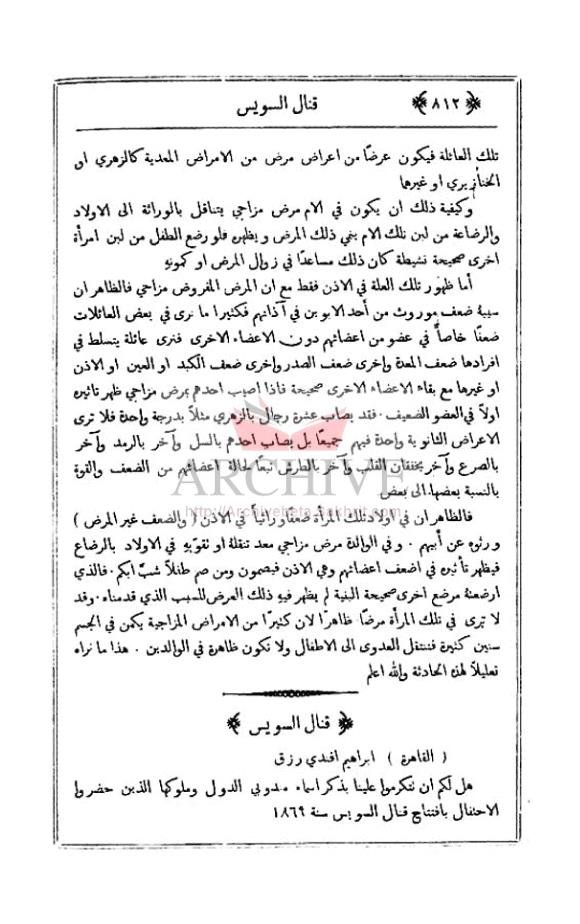 ﴿٨١٢﴾ قنال السويس
تلك العائلة فيكون عرضًا من اعراض مرض من الامراض المعدية كالزهري او
الخنازيري او غيرها
وكيفية ذلك ان يكون في الام مرض مزاجي يتناقل بالوراثة الى الاولاد
والرضاعة من لبن تلك الام ينمي ذلك المرض ويظهره فلو رضع الطفل من لبن امرأة
اخرى صحيحة نشيطة كان ذلك مساعدًا في زوال المرض او كمونه
أما ظهور تلك العلة في الاذن فقط مع ان المرض المفروض مزاجي فالظاهر ان
سببة ضعف موروث من أحد الابوين في آذانهم فكثيرا ما نرى في بعض العائلات
ضعفًا خاصاً في عضو من اعضائهم دون الاعضاء الاخرى فنرى عائلة يتسلط في
افرادها ضعف المعدة واخرى ضعف الصدر واخرى ضعف الكبد او العين او الاذن
او غيرها مع بقاء الاعضاء الاخرى صحيحة فاذا اصيب احدهم بمرض مزاجي ظهر تاثيره
اولاً في العضو الضعيف . فقد يصاب عشرة رجال بالزهري مثلاً بدرجة واحدة فلا ترى
الاعراض الثانوية واحدة فيهم جميعًا بل يصاب احدهم بالسل وآخر بالرمد وآخر
بالصرع وآخر بخفقان القلب وآخر بالطرش تبعًا لحالة اعضائهم من الضعف والقوة
ARCHIVE
بالنسبة بعضها الى بعض
http://Archivebeta.Sakhrit.com
فالظاهر ان في اولاد تلك المرأة ضعفًا وراثياً في الاذن ( والضعف غير المرض )
ورثوه عن أبيهم . وفي الوالدة مرض مزاجي معد تنقلة او تقويه في الاولاد بالرضاع
فيظهر تأثيره في اضعف اعضائهم وهي الاذن فيصمون ومن صم طفلاً شبّ ابكم . فالذي
ارضعته مرضع اخرى صحيحة البنية لم يظهر فيه ذلك العرض للسبب الذي قدمناه . وقد
لا ترى في تلك المرأة مرضًا ظاهرًا لان كثيرًا من الامراض المزاجية يكمن في الجسم
سنين كثيرة فتنتقل العدوى الى الاطفال ولا تكون ظاهرة في الوالدين . هذا ما نراه
تعليلاً لهذه الحادثة والله اعلم
﴿ قنال السويس ﴾
( القاهرة ) ابراهيم افندي رزق
هل لكم ان تتكرموا علينا بذكر اسماء مندوبي الدول وملوكها الذين حضروا
الاحتفال بافتتاح قنال السويس سنة ١٨٦٩